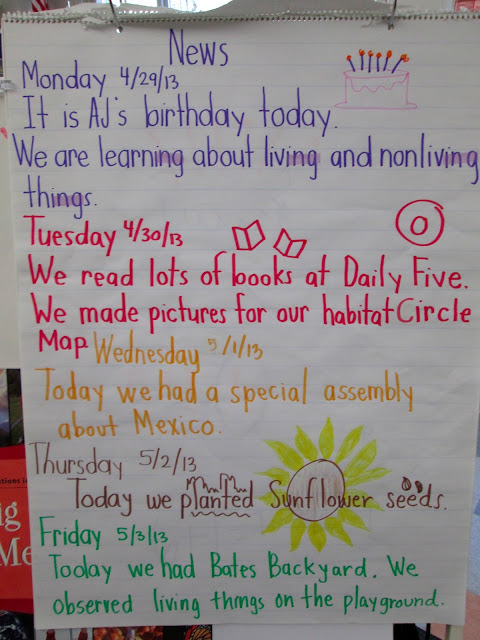 News
Monday 4/29/13
It is AJ's birthday today.
We are learning about living and nonliving
things.
Tuesday 4/30/13
O
We read lots of books at Daily Five.
We made pictures for our habitat Circle
Map Wednesday 5/1/13
Today we had a special assembly
about Mexico.
Thursday 5/2/13
Today we planted Sunflower seeds.
Friday 5/3/13
Today we had Bates Backyard. We
observed living things on the playground.
ig
Me